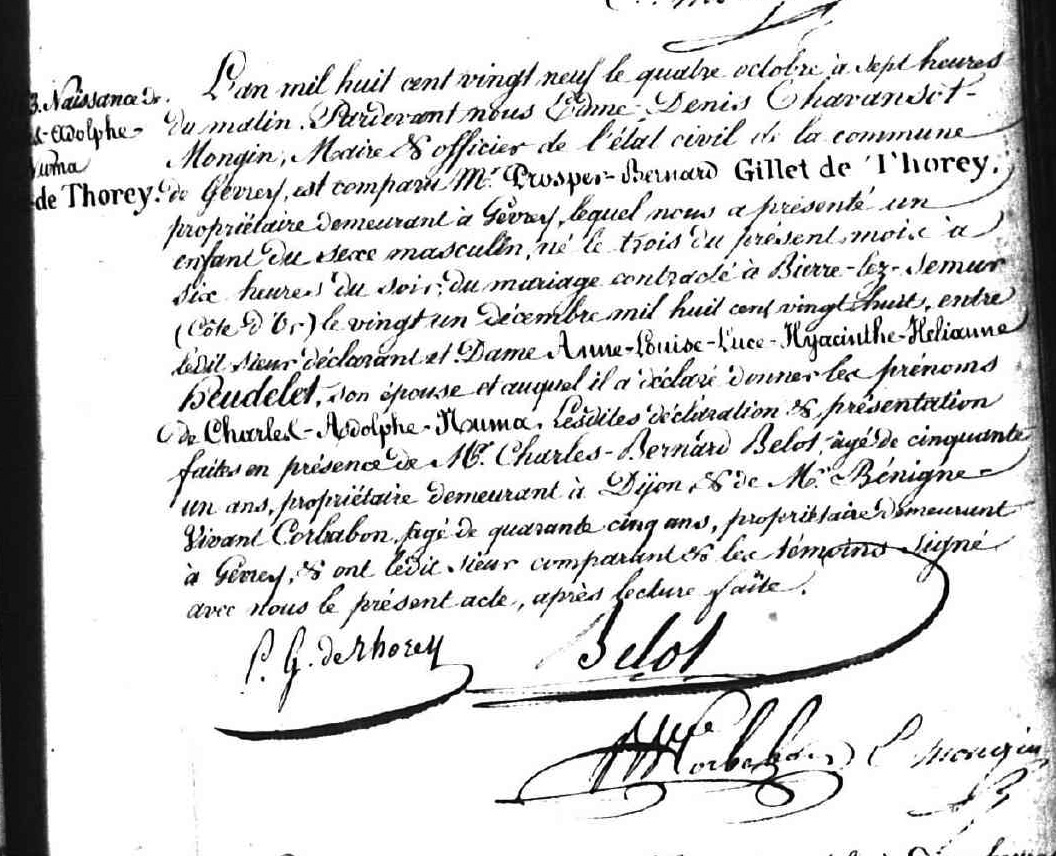 3. Naissance de
Adolphe-
Numa
de Thorey.
L'an mil huit cent vingt neuf le quatre octobre à sept heures
du matin. Pardevant nous Edme-Denis Chavansot-
Mongin, Maire & officier de l'état civil de la commune
de Gevrey, est comparu Mr. Prosper-Bernard Gillet de Thorey,
propriétaire demeurant à Gevrey, lequel nous a présenté un
enfant du sexe masculin, né le trois du présent mois à
six heures du soir, du mariage contracté à Bierre-lez-Semur
(Côte d'Or) le vingt un décembre mil huit cent vingt huit, entre
ledit sieur déclarant et Dame Anne-Louise-Luce-Hyacinthe-Helianne
heudelet, son épouse et auquel il a déclaré donner les prénoms
de Charles-Adolphe-Numa. Lesdites déclaration & présentation
faites en présence de Mr. Charles-Bernard Belot, âgé de cinquante
un ans, propriétaire demeurant à Dijon, & de Mr. Bénigne-
Vivant Corbabon, âgé de quarante cinq ans, propriétaire demeurant
à Gevrey, & ont ledit sieur comparant & les témoins signé
avec nous le présent acte, après lecture faite.
P. G. de Thorey
Belot
Corbabon
C Mongin